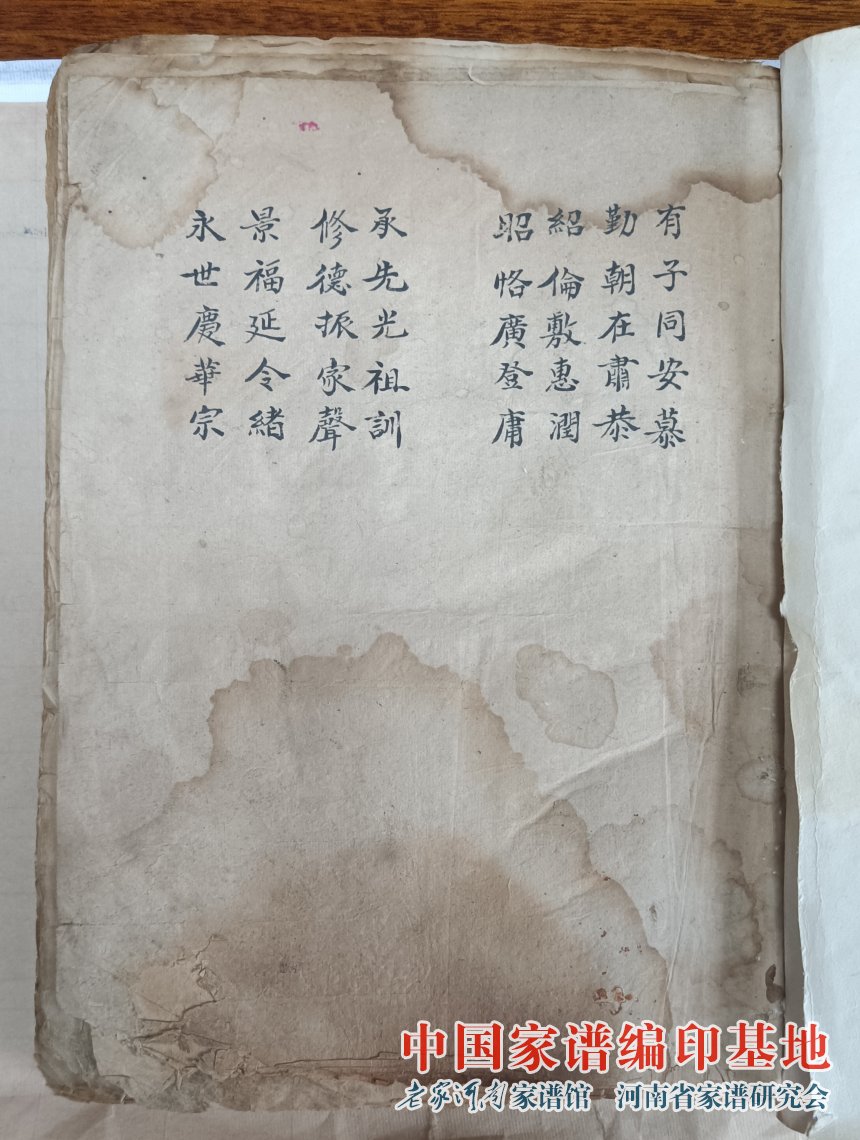 有子同安慕
勤朝在肅恭
紹倫敷惠潤
昭恪廣登庸
承先光祖訓
修德振家聲
景福延令緒
永世慶華宗
中国家谱编印基地
老家河南家谱馆 河南省家谱研究会